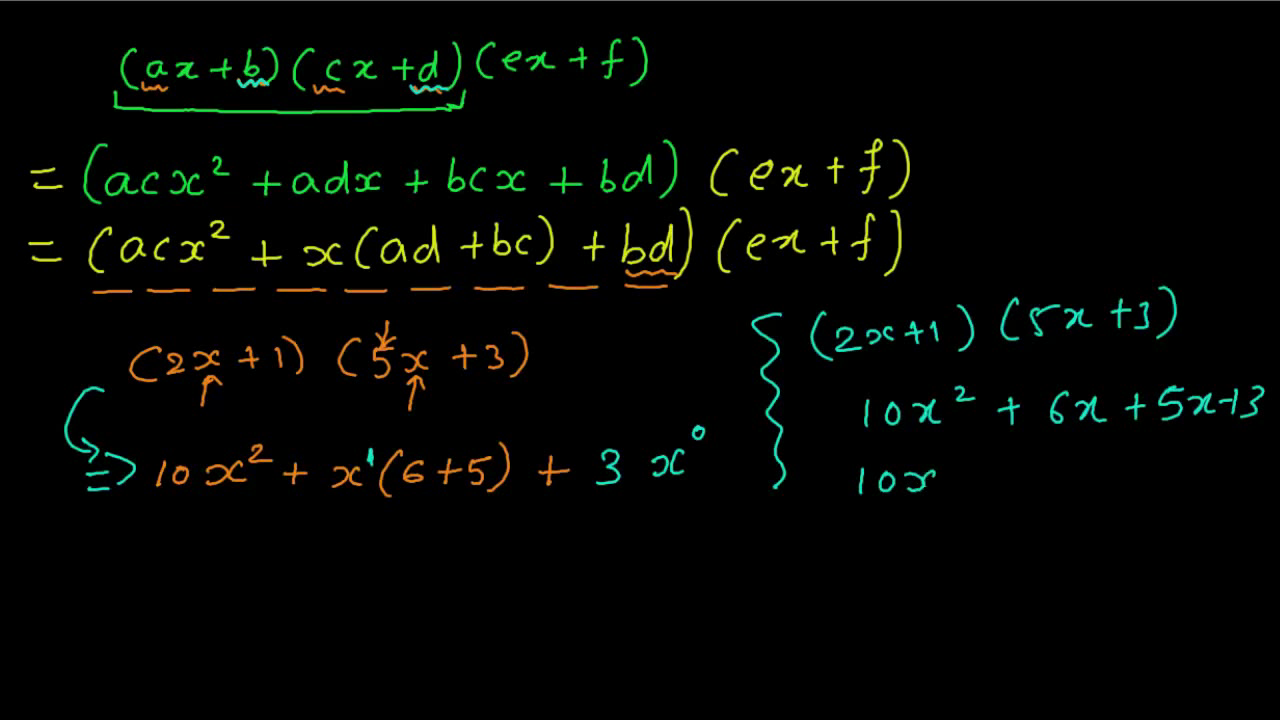 (ax + b) (cx + d) (ex + f)
= (acx² + adx + bcx + bd) (ex + f)
= (acx² + x(ad + bc) + bd) (ex + f)
(2x + 1) (5x + 3)
=> 10x² + x¹(6+5) + 3 x⁰
(2x+1) (5x+3)
10x² + 6x + 5x+3
10x